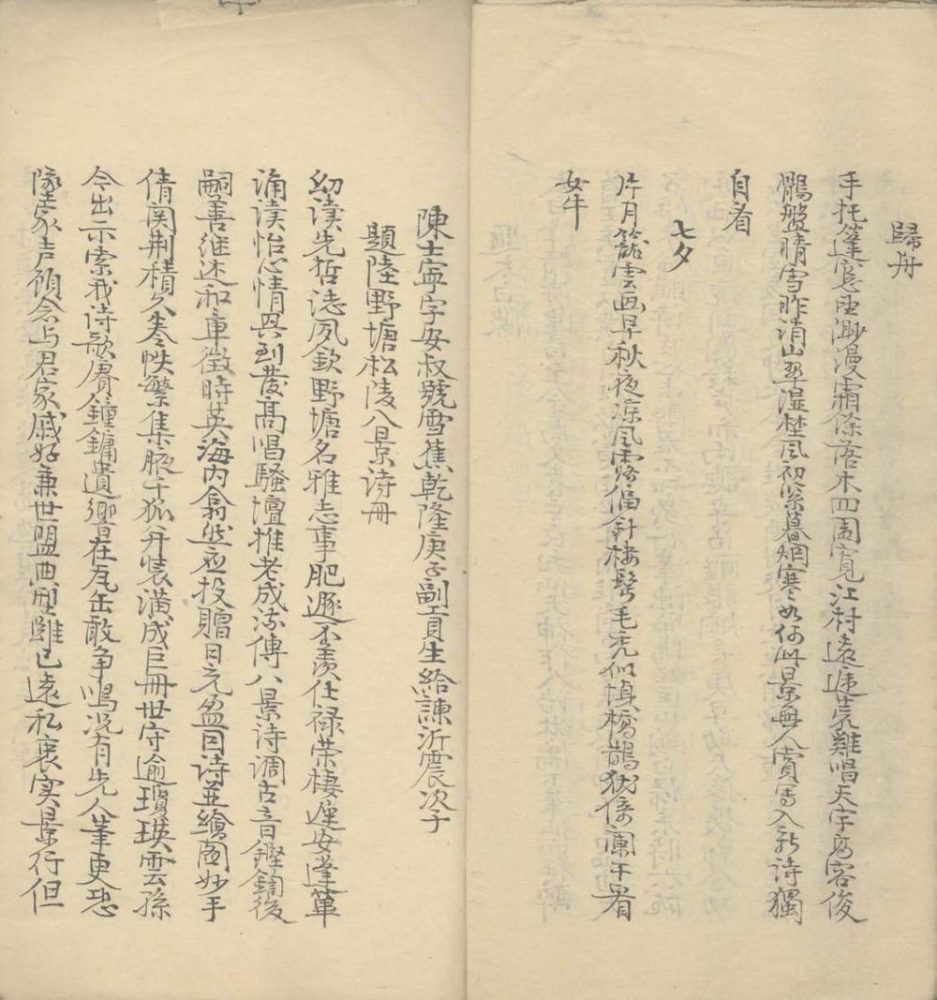 歸舟
手托篷窓坐渺漫霜條落木四圍寬江村遠遞荒雞唱天宇高容俊
鶻盤晴雪昨消山翠濕埜風初緊暮烟寒如何此景無人賞寫入新詩獨
自看
七夕
片月籠雲画早秋夜涼風露偏針樓髩毛禿似填橋鵲猶倚闌干看
女牛
陳士寧字安叔號雪蕉乾隆庚子副貢生給諫沂震次子
題陸野塘松陵八景诗册
幼讀先哲誌夙欽野塘名雅志事肥遯不羨仕禄榮棲遲安蓬蓽
誦讀怡心情興到發高唱騷壇推老成流傳八景诗调古音鏗鍧後
嗣善繼述和章徵時英海内翕然應投贈日充盈因诗並繪圖妙手
倩関荆積久卷帙繁集腋千狐并装潢成巨冊世守逾瓊瑛雲孫
今出示索我诗歌賡鐘鏞遺響在瓦缶敢争鳴况有先人筆更恐
墜家声顧念与君家戚好兼世盟典型雖已遠私衷实景行但